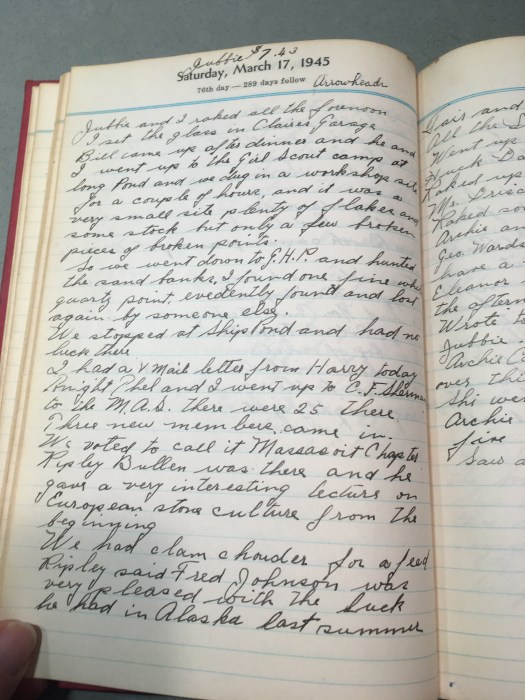 Jubbie $7.43
Saturday, March 17, 1945
76th day — 289 days follow Arrowheads
Jubbie and I raked all the forenoon
I set the glass in Claires Garage
Bill came up after dinner and he and
I went up to the Girl Scout camp at
long Pond and we dug in a workshop site
for a couple of hours, and it was a
very small site plenty of flakes and
some stock but only a few broken
pieces of broken points.
So we went down to G.H.P. and hunted
the sand banks. I found one fine whi
quartz point evedently found and lost
again by someone else.
We stopped at Ship Pond and had no
luck there
I had a V Mail letter from Harry today
Tonight Phil and I went up to C.F. Sherman
to the M.A.S. there were 25 there
Three new members came in.
We voted to call it Massasoit Chapter
Ripley Bullen was there and he
gave a very interesting lecture on
European stone culture from the
beginning
We had clam chouder for a feed
Ripley said Fred Johnson was
very pleased with the luck
he had in Alaska last summer
Fair and
All the
Went up
Houck
Raked up
Mr. Drisc
Raked so
Archie an
Geo. Wards
have a
Eleanor
the aftern
Wrote t
Jubbie
Archie C
over thi
Shi wen
Archie
fire
Saw a